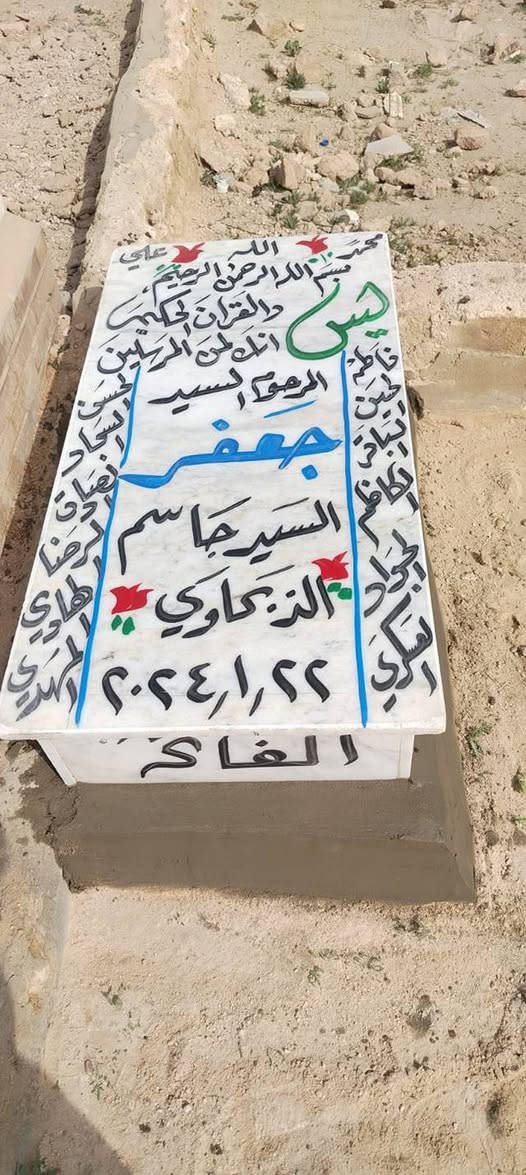 محمد الله علي
بسم الله الرحمن الرحيم
يس والقرآن الحكيم
انك لمن المرسلين
المرحوم السيد
جعفر
السيد جاسم
الذبحاوي
٢٠٢٤/١/٢٢
فاطمة
الحسين
الباقر
الكاظم
الجواد
العسكري
الحسن
السجاد
الصادق
الرضا
الهادي
المهدي